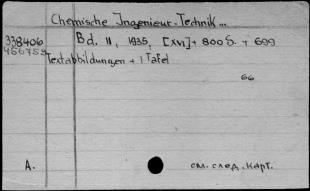 Chemische Ingenieur-Technik...
338406 Bd. II, 1935, [XVI] + 800 S. + 699
456759 Textabbildungen + 1 Tafel
66
A. см. след. карт.